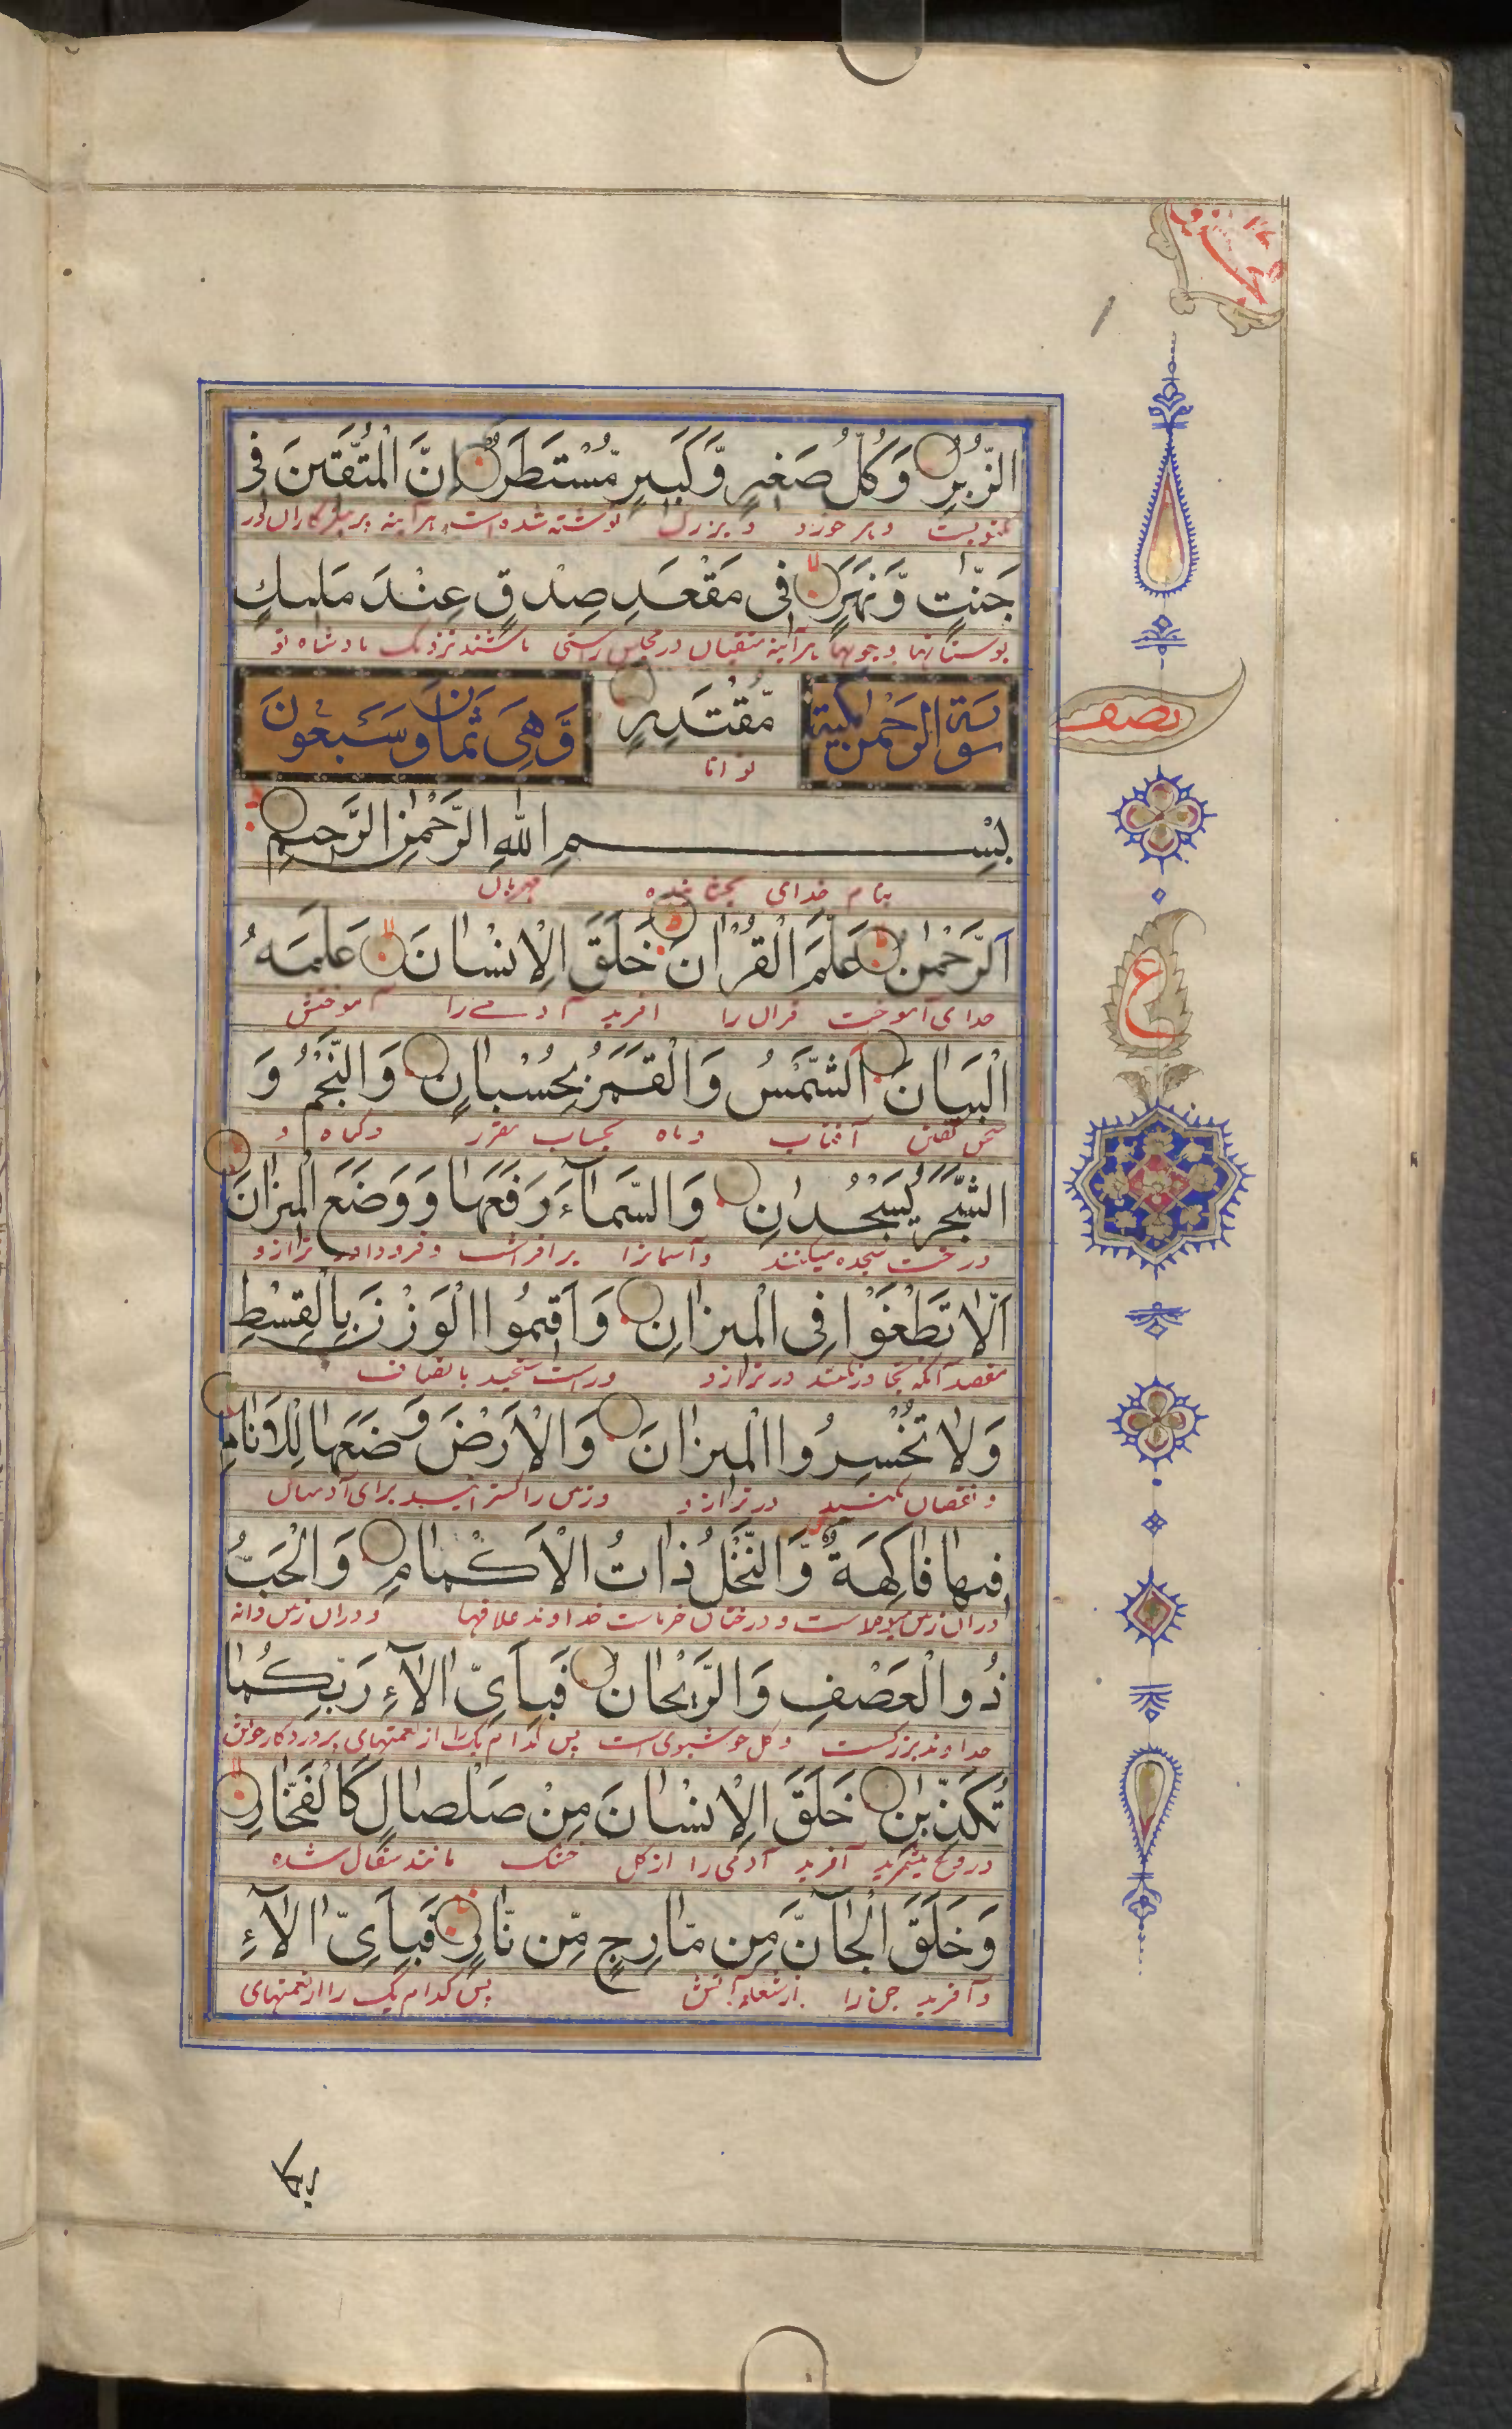 الزُّبُرِ وَكُلُّ صَغِيرٍ وَّكَبِيرٍ مُّسْتَطَرٌ اِنَّ الْمُتَّقِينَ فِى
و هر خورد و بزرگ نوشته شده است هر آینه پرهیزگاران در
جَنّٰتٍ وَّنَهَرٍ فِى مَقْعَدِ صِدْقٍ عِنْدَ مَلِيكٍ
بوستانها و جویها هرآینه متقیان در مجلس راستی باشند نزدیک پادشاه
سورة الرحمن مكية
مُّقْتَدِرٍ
وَّهِىَ ثَمَانَ وَسَبْعُونَ
توانا
نصف
بِسْمِ اللّٰهِ الرَّحْمٰنِ الرَّحِيمِ
بنام خدای بخشاینده مهربان
اَلرَّحْمٰنُ عَلَّمَ الْقُرْاٰنَ خَلَقَ الْاِنْسَانَ عَلَّمَهُ
خدای آموخت قرآن را افرید آدمے را آموختش
ع
الْبَيَانَ اَلشَّمْسُ وَالْقَمَرُ بِحُسْبَانٍ وَالنَّجْمُ وَ
سخن گفتن آفتاب و ماه بحساب مقرر و گیاه و
الشَّجَرُ يَسْجُدَانِ وَالسَّمَآءَ رَفَعَهَا وَوَضَعَ الْمِيزَانَ
درخت سجده میکنند و آسمانرا برافراشت و فرود آورد ترازو
اَلَّا تَطْغَوْا فِى الْمِيزَانِ وَاَقِيمُوا الْوَزْنَ بِالْقِسْطِ
مقصد آنکه تجاوز نکنند در ترازو و راست سنجید بانصاف
وَلَا تُخْسِرُوا الْمِيزَانَ وَالْاَرْضَ وَضَعَهَا لِلْاَنَامِ
و نقصان نکنید در ترازو و زمین را گسترانید برای آدمیان
فِيهَا فَاكِهَةٌ وَّالنَّخْلُ ذَاتُ الْاَكْمَامِ وَالْحَبُّ
در آن زمین میوهاست و درختان خرماست خداوند غلافها و در آن زمین دانه
ذُو الْعَصْفِ وَالرَّيْحَانُ فَبِاَىِّ اٰلَآءِ رَبِّكُمَا
خداوند برگست و گل خوشبوی است پس کدام یک را از نعمتهای پروردگار خویش
تُكَذِّبٰنِ خَلَقَ الْاِنْسَانَ مِنْ صَلْصَالٍ كَالْفَخَّارِ
دروغ میشمرید آفرید آدمی را از گل خشک مانند سفال شده
وَخَلَقَ الْجَآنَّ مِن مَّارِجٍ مِّن نَّارٍ فَبِاَىِّ اٰلَآءِ
و آفرید جن را از شعله آتش پس کدام یک را از نعمتهای
ربکما